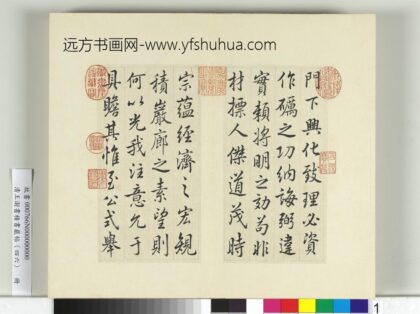 远方书画网-www.yfshuhua.com
門下興化致理必資
作礪之功納誨弼違
實賴將明之効苟非
材摽人傑道茂時
宗蘊經濟之宏規
積巖廊之素望則
何以光我注意允于
具瞻其惟至公式舉
1